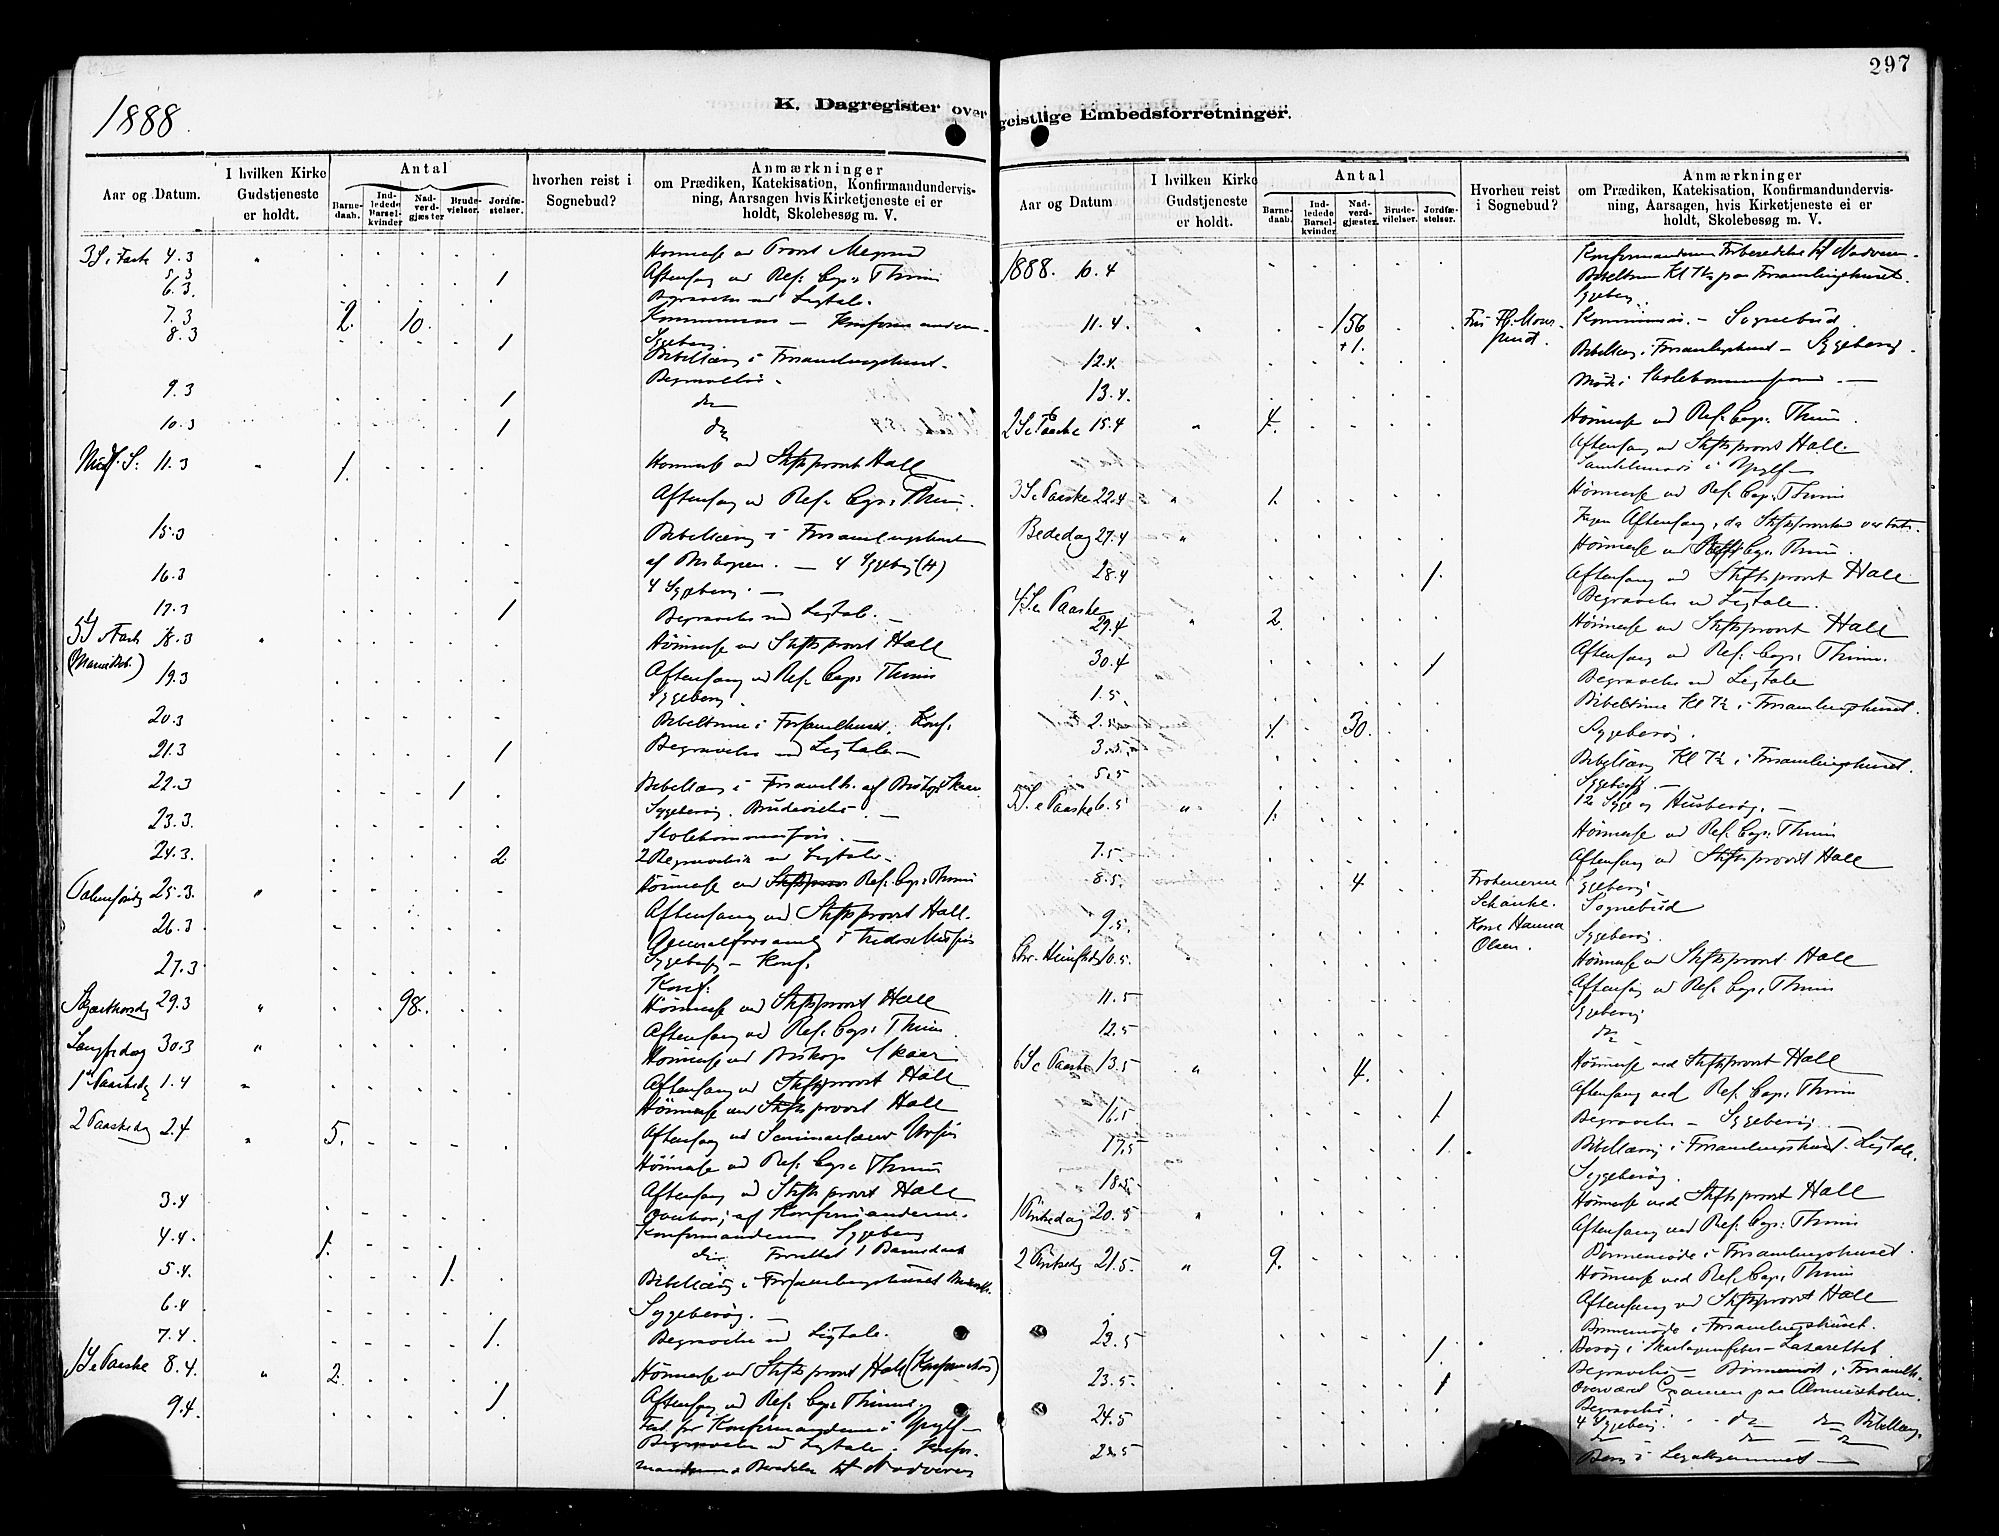 297
1888.
K. Dagregister over
geistlige Embedsforretninger.
Aar og Datum.
I hvilken Kirke
Gudstjeneste
er holdt.
Antal
Barne-
daab.
Ind-
ledede
Barsel-
kvinder
Nad-
verd-
gjæster
Brude-
vielser.
Jordfæ-
stelser.
hvorhen reist i
Sognebud?
Anmærkninger
om Prædiken, Katekisation, Konfirmandundervis-
ning, Aarsagen hvis Kirketjeneste ei er
holdt, Skolebesøg m. V.
3 S. i Faste 4.3 Høimesse ved Provst
5.3
6.3. 1 Aftensang ved Res. Cap. Thuin
Begravelse ved Ligtale.
7.3 2. 10.
8.3 1 Sygebesøg
Bibellæsng i Forsamlingshuset.
Begravelse.
9.3 1 do
10.3 1 do
Midf. S. 11.3 1. Høimesse ved Stiftsprovst Hall
Aftensang ved Res. Cap. Thuin.
15.3 Bibellæsng i Forsamlingshuset
af Biskopen. — 4 Sygebesøg (H)
16.3 4 Sygebesøg. —
17.3 1 Begravelse med Ligtale. —
5 S. i Faste 18.3 Høimesse ved Stiftsprovst Hall
19.3 Aftensang ved Res. Cap. Thuin
Sygebesøg.
20.3 Bibeltime i Forsamlhuset. Konf.
21.3 1 Begravelse ved Ligtale —
22.3 1 Bibellæsng i Forsamlh. af Biskop Skaar
Sygebesøg. Brudevielse. —
23.3. Skolekommission. —
24.3. 2 2 Begravelser ved Ligtale. —
Palmesøndg 25.3. Høimesse ved Res. Cap. Thuin
Aftensang ved Stiftsprovst Hall.
26.3 Generalforsamlg i Indremission
27.3 Sygebesøg — Konf.
Konf.
Skjærthorsdg 29.3 98. Høimesse ved Stiftsprovst Hall
Aftensang ved Res. Cap. Thuin.
Langfredag 30.3 Høimesse ved Biskop Skaar
Aftensang ved Stiftsprovst Hall
1ste Paaskedg 1.4 Høimesse ved Stiftsprovst Hall
2 Paaskedag 2.4 5. Aftensang ved
Høimesse ved Res. Cap. Thuin
Aftensang ved Stiftsprovst Hall
3.4 af Konfirmanderne.
4.4. 1. Konfirmanderne Sygebesøg
do Forrettet 1 Barnedaab
5.4. 1. Bibellæsng i Forsamlingshuset
6.4 Sygebesøg. —
7.4. 1. Begravelse ved Ligtale.
1 S. e Paaske 8.4. 2. Høimesse ved Stiftsprovst Hall
9.4. 1 Aftensang ved Res. Cap. Thuin.
Fest for Konfirmanderne i
Begravelse ved Ligtale.
Aar og Datum
I hvilken Kirke
Gudstjeneste
er holdt.
Antal
Barne-
daab.
Ind-
ledede
Barsel-
kvinder
Nad-
verd-
gjæster.
Brude-
vilelser.
Jordfæ-
stelser.
Hvorhen reist
i Sognebud?
Anmærkninger
om Prædiken, Katekisation, Konfirmandundervis-
ning, Aarsagen, hvis Kirketjeneste ei er
holdt, Skolebesøg m. V.
1888. 10.4 Konfirmandernes Forberedelse til Nadveren.
Bibeltime Kl 7½ paa Forsamlingshuset.
Sygebesøg.
11.4. 156 Sognebud.
+1.
12.4. Bibellæsng i Forsamlingshuset — Sygebesøg.
13.4. Møde i Skolekommission. —
2 S. e Paaske 15.4 4. Høimesse ved Res. Cap. Thuin.
Aftensang ved Stiftsprovst Hall.
3 S. e Paaske 22.4 1. Høimesse ved Res. Cap. Thuin
Ingen Aftensang, da Stiftsprovsten var
Bededag 27.4 Høimesse ved Res. Cap. Thuin.
28.4 1. Aftensang ved Stiftsprovst Hall
Begravelse ved Ligtale.
4 S. e Paaske
29.4 2. Høimesse ved Stiftsprovst Hall
Aftensang ved Res. Cap. Thuin.
30.4 1 Begravelse ved Ligtale
1.5. Bibeltime Kl 7½ i Forsamlingshuset.
2.5. 1. 30. Sygebesøg.
3.5. Bibellæsng Kl 7½ i Forsamlingshuset.
5.5 Sygebesøg —
12 Syge og Husbesøg. —
5 S. e Paaske 6.5 1. Høimesse ved Res. Cap. Thuin
Aftensang ved Stiftsprovst Hall
7.5 Sygebesøg
8.5. 4 Frøknerne
Schanke. Sognebud
9.5. Kone Hanna
Olsen. Sygebesøg.
Chr. Himlfrtsdg 10.5. Høimesse ved Stiftsprovst Hall
Aftensang ved Res. Cap. Thuin
11.5 Sygebesøg
12.5 do
6 S. e Paaske 13.5 4. Høimesse ved Stiftsprovst Hall
Aftensang ved Res. Cap. Thuin
16.5 1 Begravelse — Sygebesøg. —
17.5 1. Bibellæsng i Forsamlingshuset. Ligtale.
18.5. Sygebesøg.
1 Pintsedag 20.5 Høimesse ved Stiftsprovst Hall
Aftensang ved Res. Cap. Thuin
Børnemøde i Forsamlingshuset.
2 Pintsedg 21.5. 9. Høimesse ved Res. Cap. Thuin
Aftensang ved Stiftsprovst Hall
Børnemøde i Forsamlingshuset.
22.5 1. Besøg i Skarlagensfeber-Lazarettet
23.5. 1 Begravelse — Børnemøde i Forsamlh.
Overværet Examen paa Almueskolen.
24.5 Begravelse.
4 Sygebesøg. do do Bibellæsng.
25.5 do do